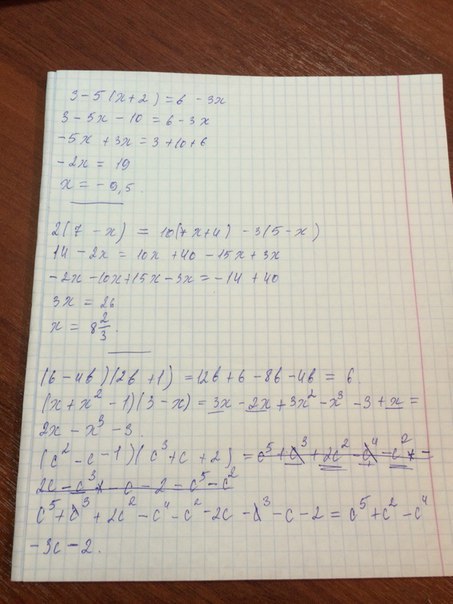 3 - 5(x+2) = 6 - 3x
3 - 5x - 10 = 6 - 3x
-5x + 3x = 3 + 10 + 6
-2x = 19
x = -9,5.
2(7 - x) = 10(7x+4) - 3(5-x)
14 - 2x = 10x + 40 - 15x + 3x
-2x - 10x + 15x - 3x = -14 + 40
3x = 26
x = 8 2/3.
(6 - 4b)(2b + 1) = 12b + 6 - 8b - 4b = 6.
(x + x² - 1)(3 - x) = 3x - 2x + 3x² - x³ - 3 + x =
2x - x³ - 3.
(c² - c - 1)(c³ + c + 2) =
c⁵ + c³ + 2c² - c⁴ - c² - 2c - c³ - c - 2 = c⁵ + c² - c⁴
- 3c - 2.